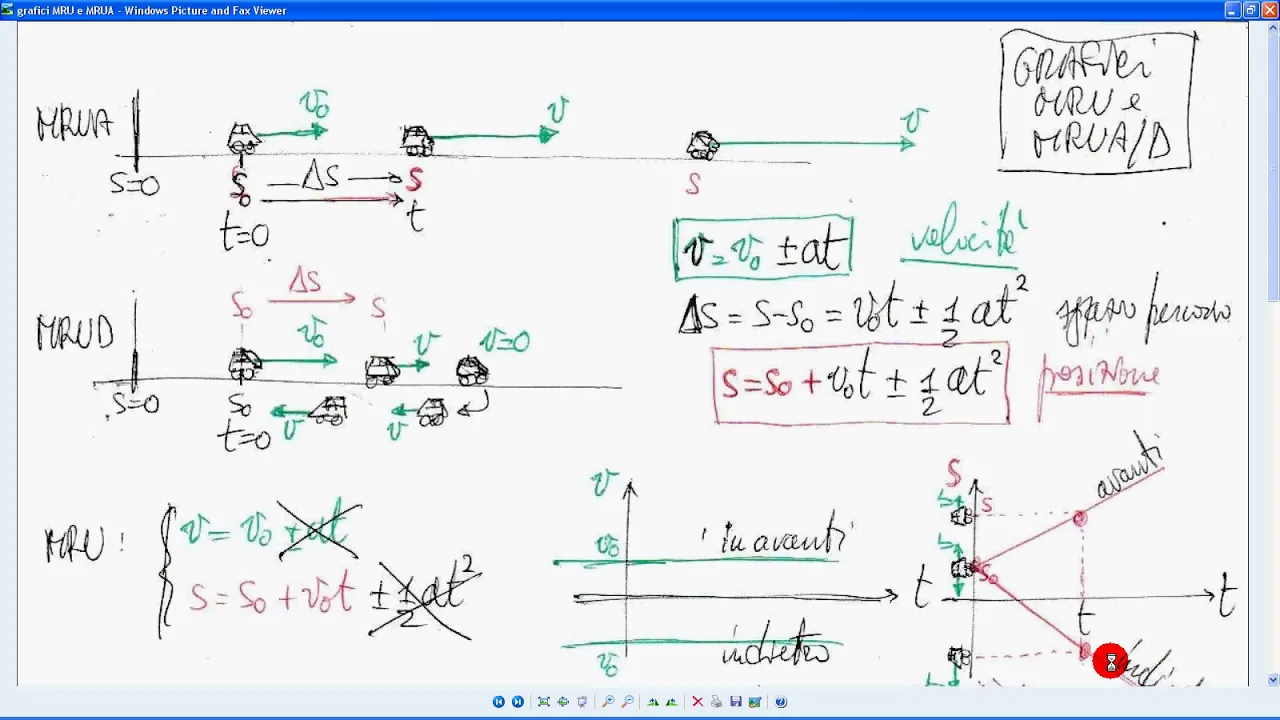 grafici MRU e MRUA - Windows Picture and Fax Viewer
GRAFICI
MRU e
MRUA/D
MRUA
v₀
v
v
S=0
S₀
ΔS
S
S
t=0
t
v = v₀ ± at
velocità
ΔS = S-S₀ = v₀t ± 1/2 at²
spazio percorso
S = S₀ + v₀t ± 1/2 at²
posizione
MRUD
S₀
ΔS
S
v₀
v
v=0
S=0
S₀
t=0
v
v
MRU:
v = v₀ ± at
S = S₀ + v₀t ± 1/2 at²
v
v₀
in avanti
t
v₀
indietro
S
S
avanti
S₀
t
t